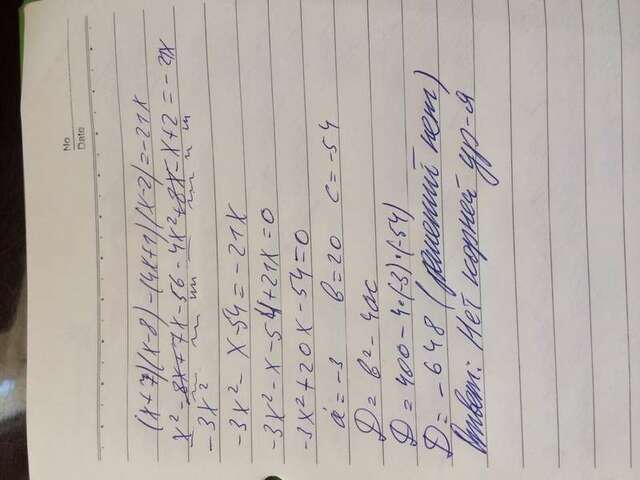 No
Date
(x+7)(x-8)-(4x+1)(x-2)=-21x
x²-8x+7x-56-4x²+8x-x+2=-21x
-3x²
-3x²-x-54=-21x
-3x²-x-54+21x=0
-3x²+20x-54=0
a=-3 b=20 c=-54
D=b²-4ac
D=400-4·(-3)·(-54)
D=-648 (решений нет)
Ответ: Нет корней ур-я